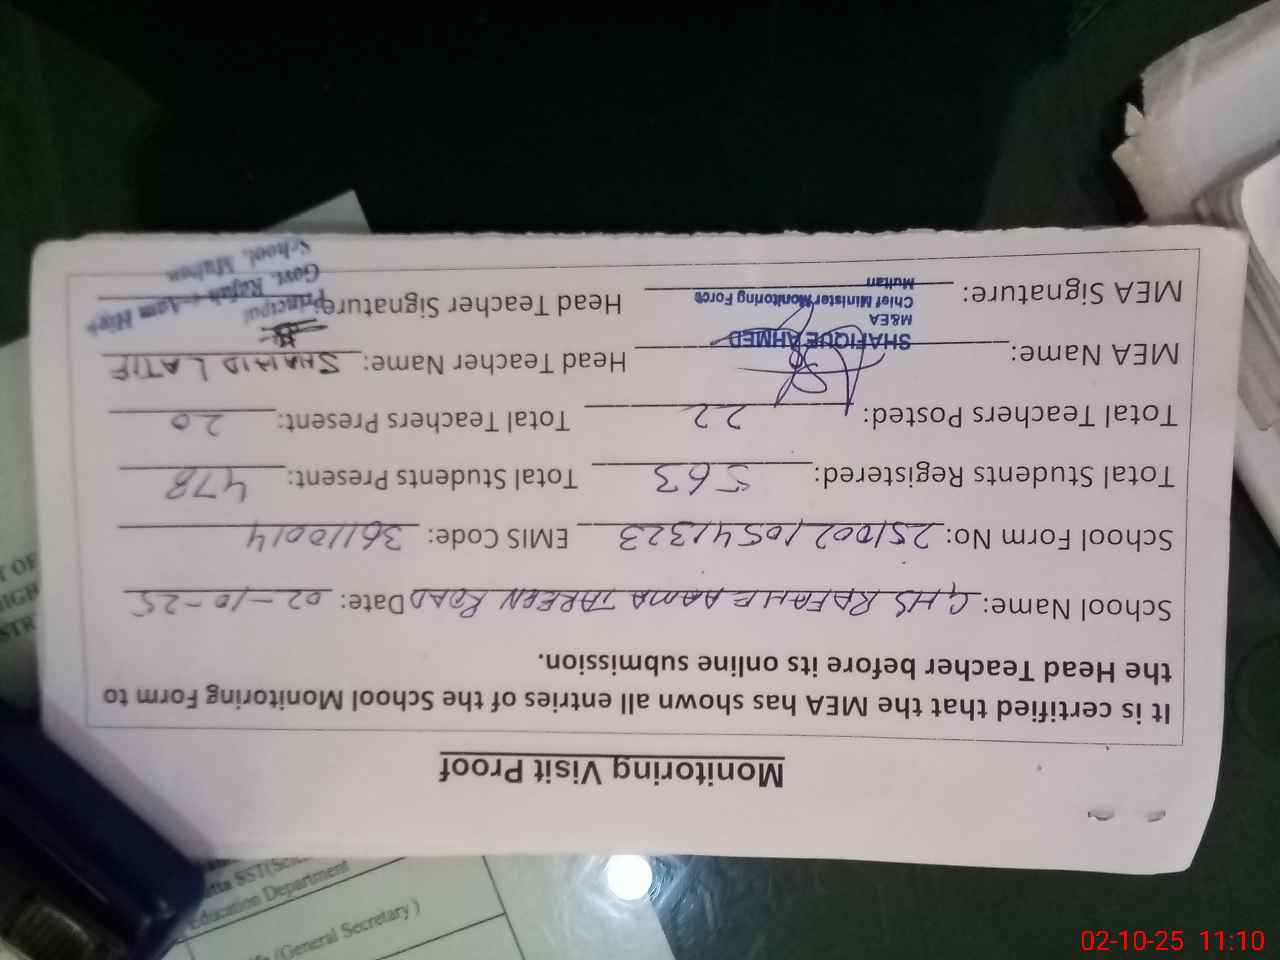 Monitoring Visit Proof
It is certified that the MEA has shown all entries of the School Monitoring Form to
the Head Teacher before its online submission.
School Name: GHS RAFAHE AAMA TAREEN ROAD Date: 02-10-25
School Form No: 251002105413 23 EMIS Code: 36110014
Total Students Registered: 563 Total Students Present: 478
Total Teachers Posted: 22 Total Teachers Present: 20
MEA Name: SHAFIQUE AHMED Head Teacher Name: SHAHID LATIF
M&EA
Chief Minister Monitoring Force
Multan
MEA Signature: Head Teacher Signature:
Principal
Govt. Rafah-e-Aam High
School, Multan
SST(Sci
Education Department
(General Secretary)
02-10-25 11:10